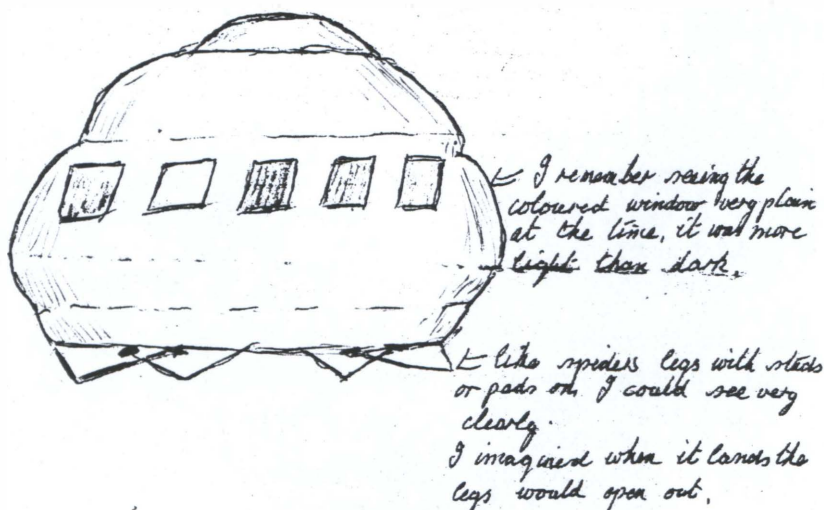 I remember seeing the
coloured window very plain
at the time, it was more
light than dark.
like spiders legs with studs
or pads on I could see very
clearly.
I imagined when it lands the
legs would open out.